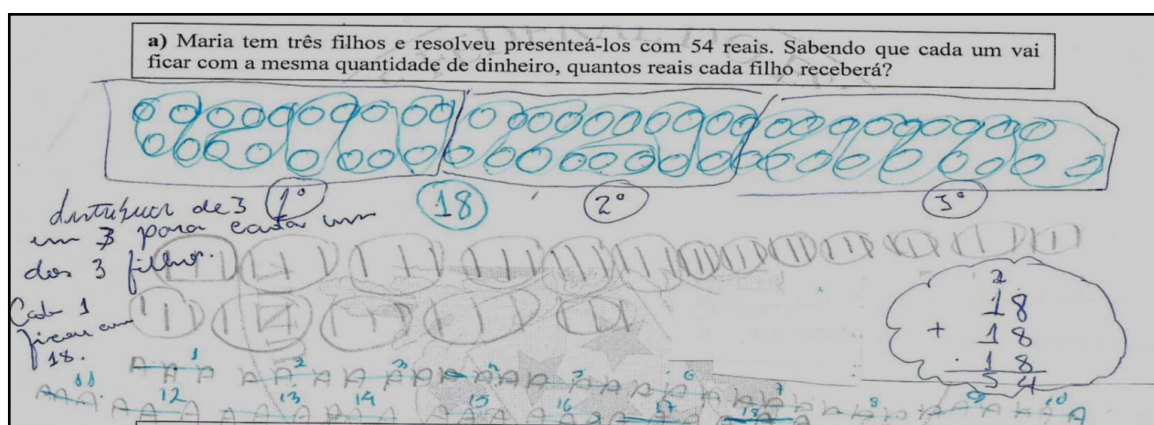 a) Maria tem três filhos e resolveu presenteá-los com 54 reais. Sabendo que cada um vai
ficar com a mesma quantidade de dinheiro, quantos reais cada filho receberá?
1º 18 2º 3º
de 3
em 3 para cada um
dos 3 filhos.
Cada 1
ficou com
18.
2
18
+ 18
18
54
1 2 3 5 6 7 8 9 10
11 12 13 14 15 16 17 18